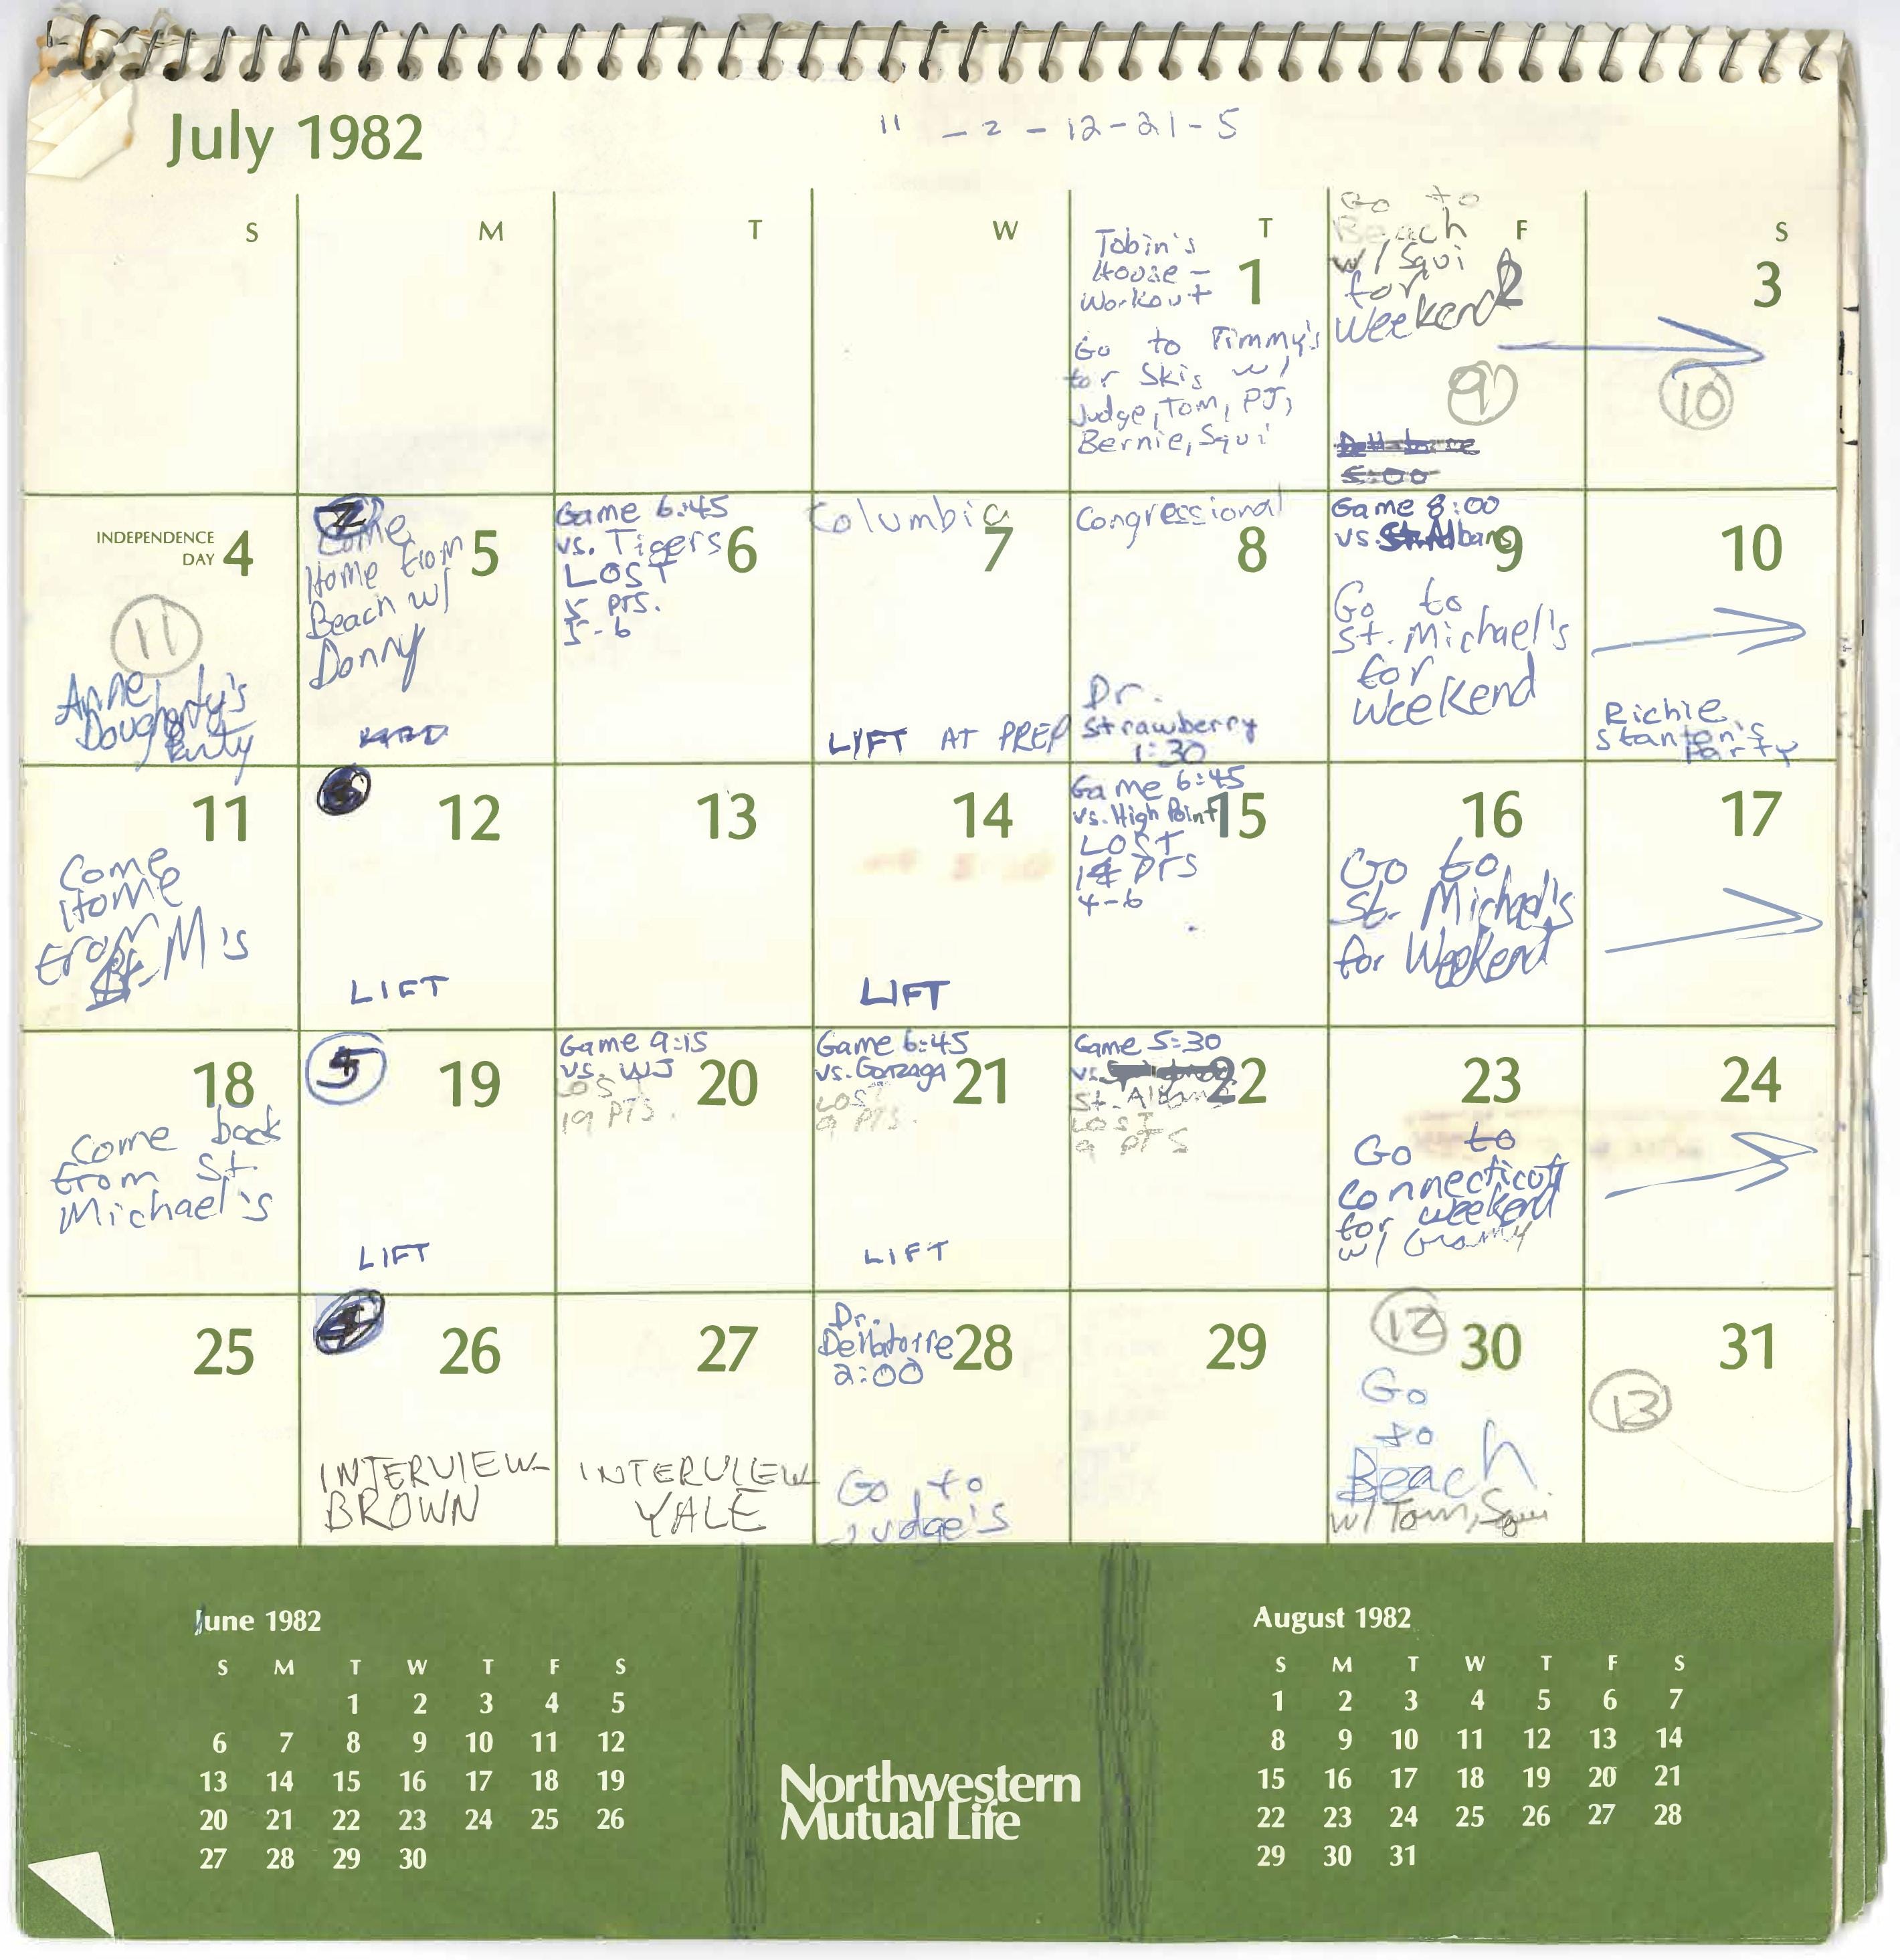 July 1982
" - 2 - 12-21-5
S
M
T
W
T
F
S
Tobin's
House -
Workout
1
Go to Timmy's
for Skis w/
Judge, Tom, PJ,
Bernie, Squi
Go to
Beach
w/ Squi
for
Weekend
2
9
5:00
3
10
INDEPENDENCE
DAY
4
11
Anne
Dougherty's
Party
Come
Home from
Beach w/
Donny
5
Game 6:45
vs. Tigers
6
LOST
5 PTS.
5-6
Columbia
7
LIFT AT PREP
Congressional
8
Dr.
Strawberry
1:30
Game 8:00
vs. St. Albans
9
Go to
St. Michael's
for
Weekend
10
Richie
Stanton's
Party
11
Come
Home
from
St. M's
12
LIFT
13
14
LIFT
Game 6:45
vs. High Point
15
LOST
PTS
4-6
16
Go to
St. Michael's
for Weekend
17
18
Come back
from St.
Michael's
19
LIFT
Game 9:15
vs. WJ
20
LOST
19 PTS.
Game 6:45
vs. Gonzaga
21
LOST
9 PTS.
LIFT
Game 5:30
vs.
22
St. Albans
LOST
9 PTS
23
Go to
Connecticut
for weekend
w/ Grammy
24
25
26
INTERVIEW
BROWN
27
INTERVIEW
YALE
Dr.
Dellatorre
28
2:00
Go to
Judge's
29
12
30
Go
to
Beach
w/ Tom, Squi
31
13
June 1982
S M T W T F S
1 2 3 4 5
6 7 8 9 10 11 12
13 14 15 16 17 18 19
20 21 22 23 24 25 26
27 28 29 30
Northwestern
Mutual Life
August 1982
S M T W T F S
1 2 3 4 5 6 7
8 9 10 11 12 13 14
15 16 17 18 19 20 21
22 23 24 25 26 27 28
29 30 31